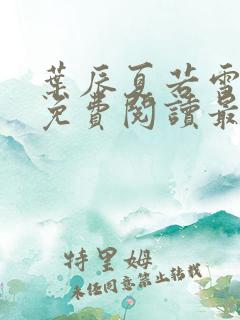 葉辰夏若雪
免費閱讀最
特里姆
未經同意禁止轉載